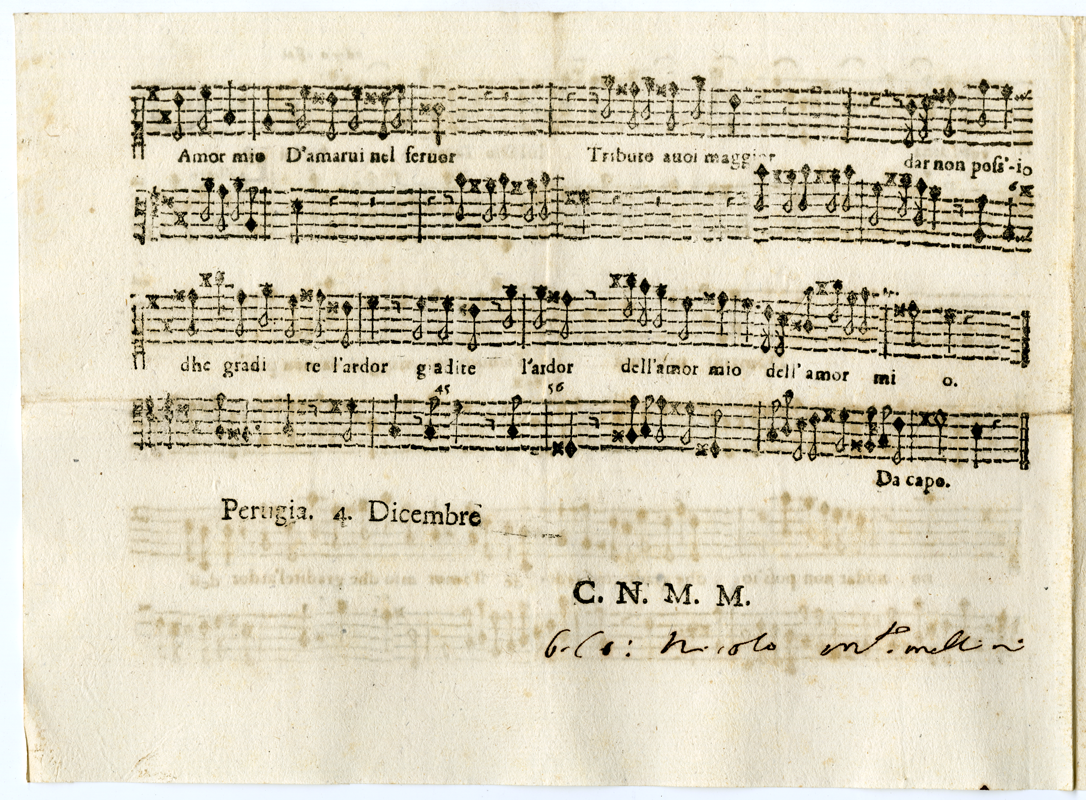 Amor mio D'amarui nel feruor Tributo auoi maggior dar non poss'-io
6
dhe gradi te l'ardor gradite l'ardor dell'amor mio dell'amor mi o.
45 56
Da capo.
Perugia. 4. Dicembre
C. N. M. M.
Nicolo